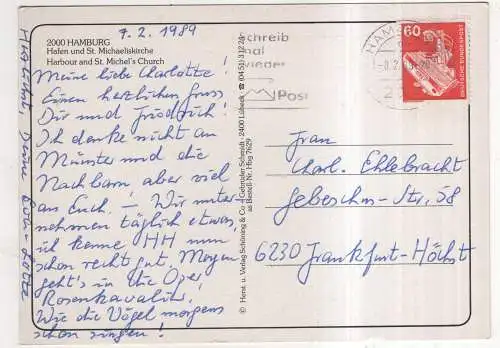 7.2.1989
2000 HAMBURG
Hafen und St. Michaeliskirche
Harbour and St. Michel's Church
Meine liebe Charlotte!
Einen herzlichen Gruss
Dir und Friedrich!
Ich denke nicht an
Münster und die
Nachbarn, aber viel
an Euch. – Wir unter-
nehmen täglich etwas,
ich kenne HH nun
schon recht gut. Morgen
geht's in die Oper
Rosenkavalier.
Wie die Vögel morgens
schon singen!
Deine
© Herst. u. Verlag Schöning & Co. + Gebrüder Schmidt · 2400 Lübeck · ☎ (04 51) 3 12 24
Bestell-Nr. Hbg 7629
Schreib
mal
wieder
Post
HAMB
60
DEUTSCHE BUNDESPOST
Frau
Charl. Ehlebracht
Gebeschus-Str. 58
6230 Frankfurt-Höchst